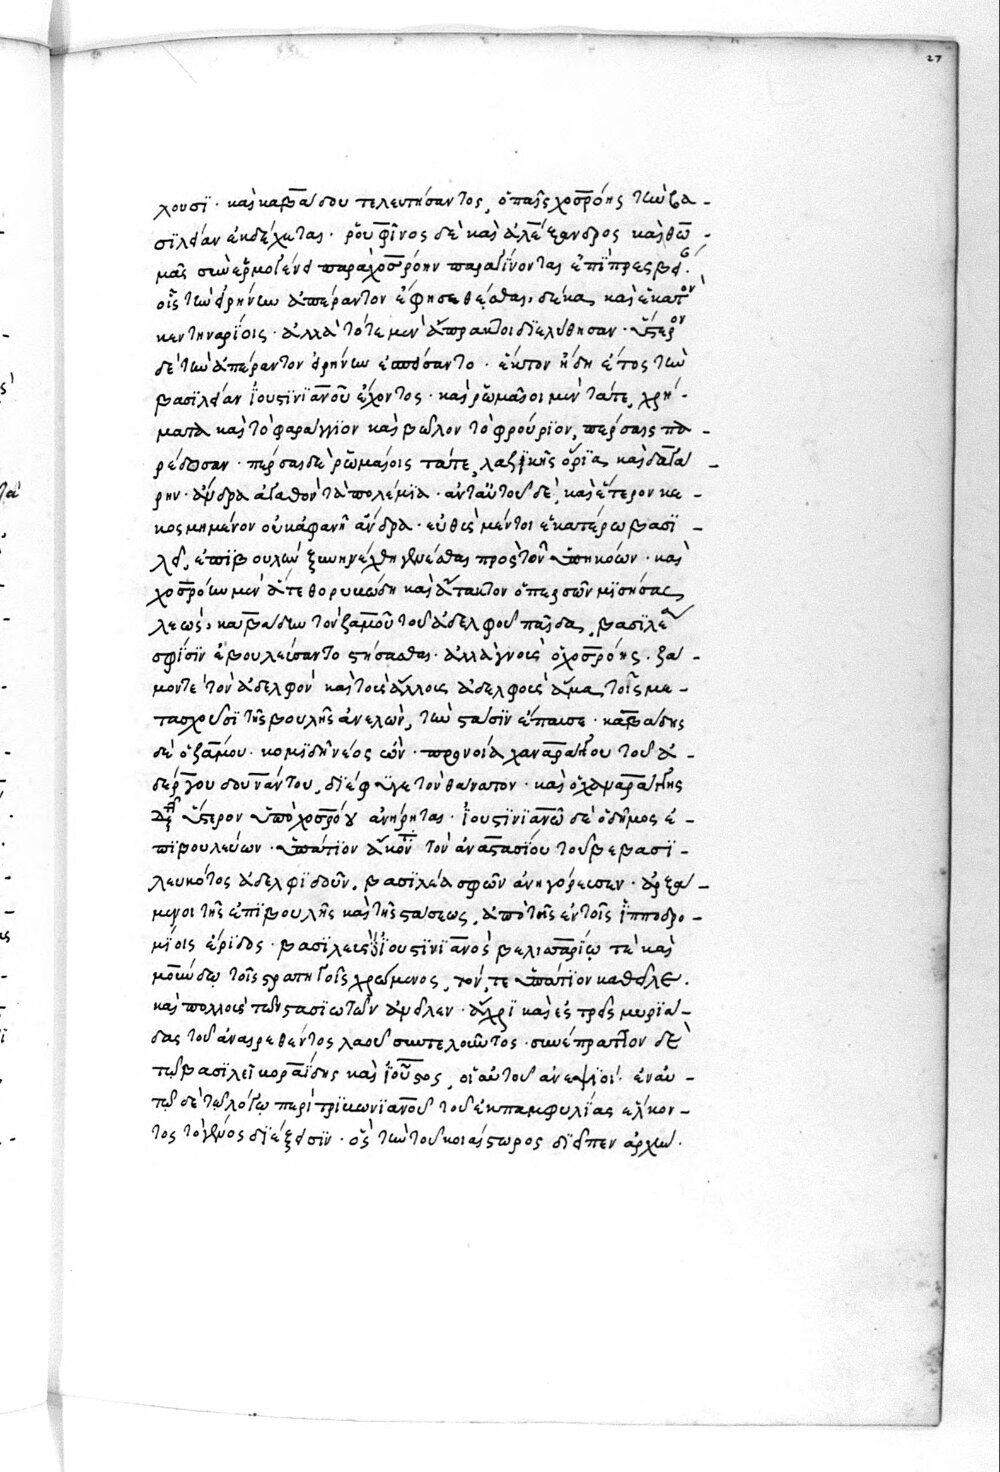 27
χουσϊ · καὶ καβάδου τελευτήσαντος, ὁ παῖς χοσρόης τὴν βα -
σϊλείαν ἐκδέχεται · ῥουφῖνος δὲ καὶ ἀλέξανδρος καὶ θω -
μᾶς σὺν ἑρμογένει παρὰ χοσρόην παραγίνονται ἐπὶ πρεσβεί.
οἷς τὴν εἰρήνην ἀπέραντον ἔφησε θέσθαι, δέκα καὶ ἑκατὸν
κεντηναρίοις · ἀλλὰ τότε μὲν ἄπρακτοι διελύθησαν · ὕστερον
δὲ τὴν ἀπέραντον εἰρήνην ἐσπείσαντο · ἕκτον ἤδη ἔτος τὴν
βασϊλείαν ϊουστϊνϊανοῦ ἔχοντος · καὶ ῥωμαῖοι μὲν τά τε χρή -
ματα καὶ τὸ φαράγγϊον καὶ βῶλον τὸ φρούρϊον, πέρσαις πα -
ρέδοσαν · πέρσαι δὲ ῥωμαίοις τά τε λαζϊκῆς ὅρϊα, καὶ δάγα
ρην · ἄνδρα ἀγαθὸν τὰ πολέμϊα · ἀντ' αὐτοῦ δὲ, καὶ ἕτερον κε -
κοσμημένον οὐκ ἀφανῆ ἄνδρα · εὐθὺς μέντοι ἑκατέρω βασϊ -
λεῖ, ἐπϊβουλὴν ξυνηνέχθη γενέσθαι πρὸς τῶν ὑπηκόων · καὶ
χοσρόην μὲν ἅτε θορυβώδη καὶ ἄτακτον ὁ περσῶν μϊσήσας
λεὼς, καβάδην τὸν ζάμου τοῦ ἀδελφοῦ παῖδα, βασϊλέα
σφίσϊν ἐβουλεύσαντο στήσασθαι · ἀλλὰ γνοὺς ὁ χοσρόης · ζά -
μον τε τὸν ἀδελφὸν καὶ τοὺς ἄλλους ἀδελφοὺς ἅμα τοῖς με -
τασχοῦσϊ τῆς βουλῆς ἀνελὼν, τὴν στάσϊν ἔπαυσε · καβάδης
δὲ ὁ ζάμου · κομϊδῇ νέος ὢν · προνοίᾳ χαναράγγου τοῦ ἀ -
δεργουδουνβάντου, δϊέφυγε τὸν θάνατον · καὶ ὁ χαναράγγης
δὲ ὕστερον ὑπὸ χοσρόου ἀνῄρηται · ϊουστϊνϊανῷ δὲ ὁ δῆμος ἐ -
πϊβουλεύων · ὑπάτϊον ἄκοντα τὸν ἀναστασίου τοῦ βεβασϊ -
λευκότος ἀδελφϊδοῦν, βασϊλέα σφῶν ἀνηγόρευσεν · ἀρξά -
μενοι τῆς ἐπϊβουλῆς καὶ τῆς στάσεως, ἀπὸ τῆς ἐν τοῖς ϊπποδρο -
μϊοις ἔριδος · βασϊλεὺς ϊουστϊνϊανὸς βελισαρίῳ τε καὶ
μούνδῳ τοῖς στρατηγοῖς χρώμενος, τόν τε ὑπάτϊον καθεῖλε ·
καὶ πολλοὺς τῶν στασϊωτῶν ἀνεῖλεν · ἄχρϊ καὶ ἐς τρεῖς μυρϊά -
δας τοῦ ἀναιρεθέντος λαοῦ συντελοῦντος · συνέπραττον δὲ
τῷ βασϊλεῖ βοραΐδης καὶ ϊοῦστος, οἱ αὐτοῦ ἀνεψϊοί · ἐν αὐ -
τῷ δὲ τῷ λόγῳ περὶ τρϊβωνϊανοῦ τοῦ ἐκ παμφυλίας ἕλκον -
τος τὸ γένος δϊέξεισϊν · ὃς τὴν τοῦ κοιαίστωρος δϊεῖπεν ἀρχὴν ·